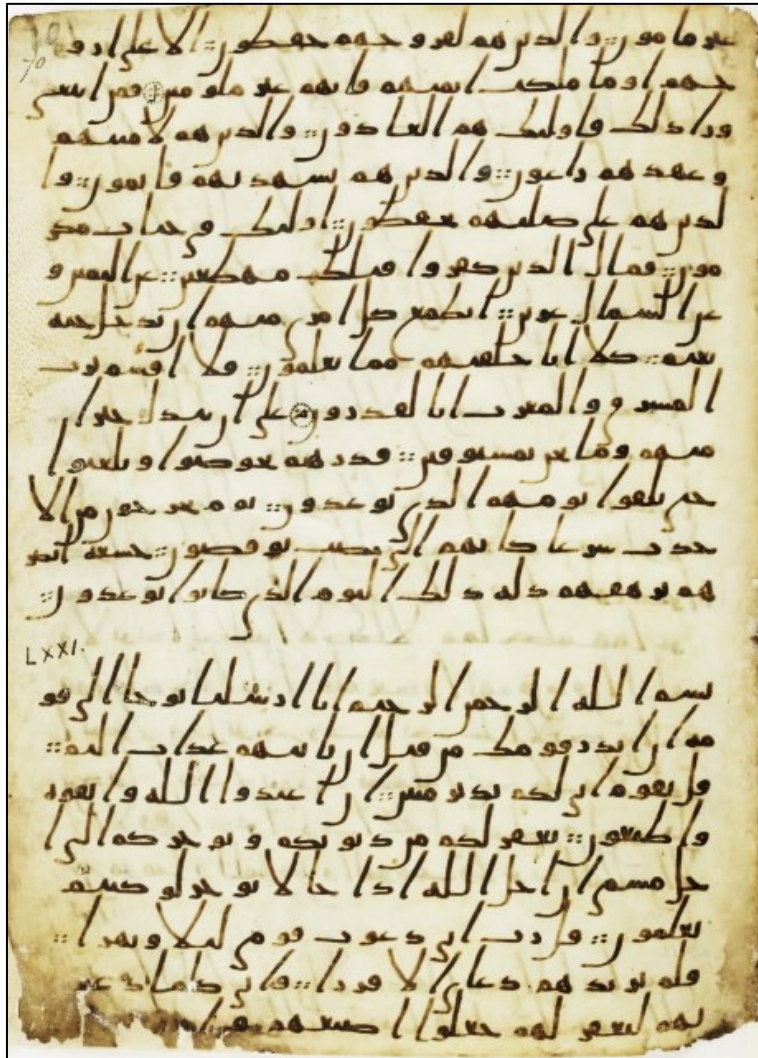 70
غير مامون :: والذين هم لفروجهم حفظون :: الا على ازو
جهم او ما ملكت ايمنهم فانهم غير ملومين فمن ابتغى
ورا ذلك فاوليك هم العادون :: والذين هم لامنتهم
وعهدهم راعون :: والذين هم بشهدتهم قايمون :: وا
لذين هم على صلتهم يحفظون :: اوليك في جنات مكر
مون :: فمال الذين كفروا قبلك مهطعين :: عن اليمين و
عن الشمال عزين :: ايطمع كل امرى منهم ان يدخل جنة
نعيم :: كلا انا خلقنهم مما يعلمون :: فلا اقسم برب
المشرق والمغرب انا لقدرون على ان نبدل خيرا
منهم وما نحن بمسبوقين :: فذرهم يخوضوا ويلعبوا
حتى يلقوا يومهم الذي يوعدون :: يوم يخرجون من الا
جدث سرعا كانهم الى نصب يوفضون :: خشعة ابصر
هم ترهقهم ذلة ذلك اليوم الذي كانوا يوعدون ::
LXXI.
بسم الله الرحمن الرحيم انا ارسلنا نوحا الى قو
مه ان انذر قومك من قبل ان ياتيهم عذاب اليم ::
قل يقوم اني لكم نذير مبين :: ان اعبدوا الله واتقوه
واطيعون :: يغفر لكم من ذنوبكم ويوخركم الى ا
جل مسمى ان اجل الله اذا جا لا يوخر لو كنتم
تعلمون :: قل رب اني دعوت قومي ليلا ونهرا ::
فلم يزدهم دعاي الا فررا :: واني كلما دعو
تهم لتغفر لهم جعلوا اصبعهم في